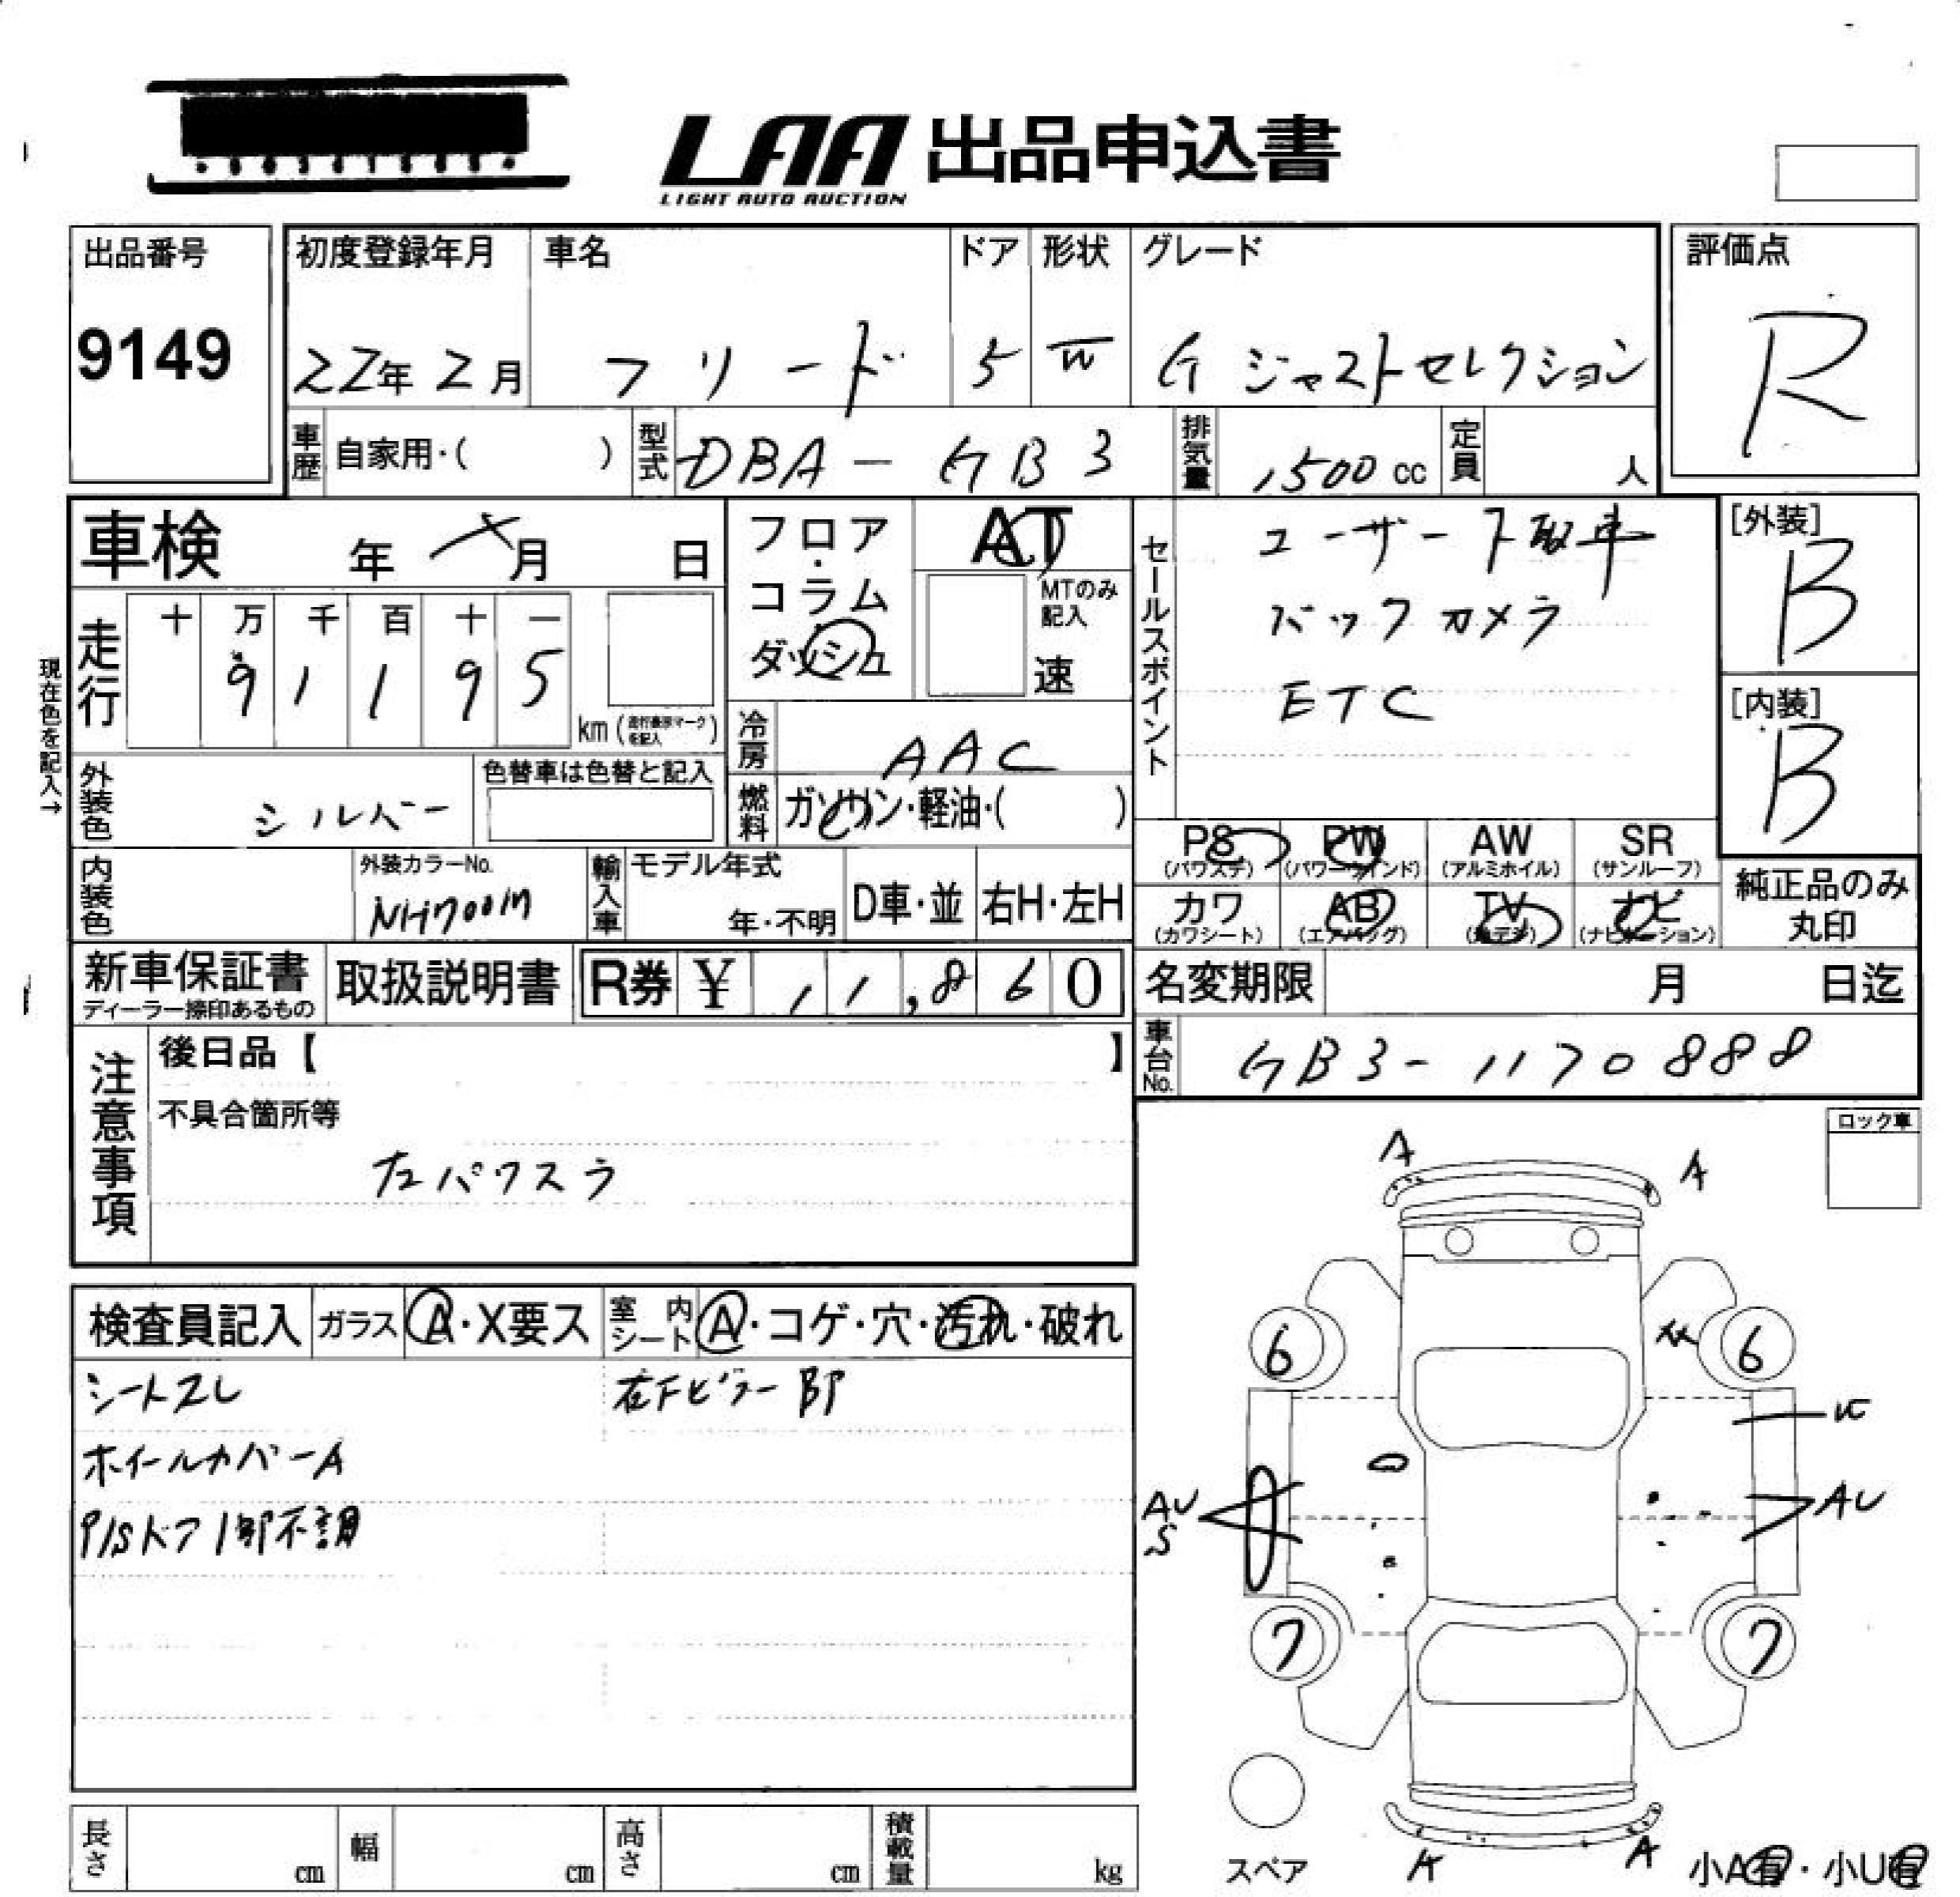 LAA 出品申込書
LIGHT AUTO AUCTION
出品番号
9149
初度登録年月
22年 2月
車名
フリード
ドア
5
形状
W
グレード
G ジャストセレクション
評価点
R
車歴 自家用・( )
型式 DBA-GB3
排気量 1500 cc
定員 人
車検 年 月 日
フロア・コラム
ダッシュ
AT
MTのみ記入
速
セールスポイント
ユーザー下取車
バックカメラ
ETC
[外装]
B
[内装]
B
現在色を記入→
走行
十 万 千 百 十 一
9 1 1 9 5
km(走行表示マークを記入)
冷房 AAC
燃料 ガソリン・軽油・( )
外装色 シルバー
色替車は色替と記入
内装色
外装カラーNo.
NH700M
輸入車
モデル年式
年・不明
D車・並
右H・左H
PS (パワステ)
PW (パワーウインド)
AW (アルミホイル)
SR (サンルーフ)
カワ (カワシート)
AB (エアバッグ)
TV (地デジ)
ナビ (ナビゲーション)
純正品のみ丸印
新車保証書
ディーラー捺印あるもの
取扱説明書
R券 ¥ 11,860
名変期限 月 日迄
車台No. GB3-1170888
注意事項
後日品【 】
不具合箇所等
左パワスラ
ロック車
検査員記入
ガラス A・X要ス
室内シート A・コゲ・穴・汚れ・破れ
シートスレ
右Fピラー部
ホイールカバーA
P/Sドア1部不調
A
A
6
6
AU
S
AU
7
7
A
A
スペア
小A有・小U有
長さ cm
幅 cm
高さ cm
積載量 kg